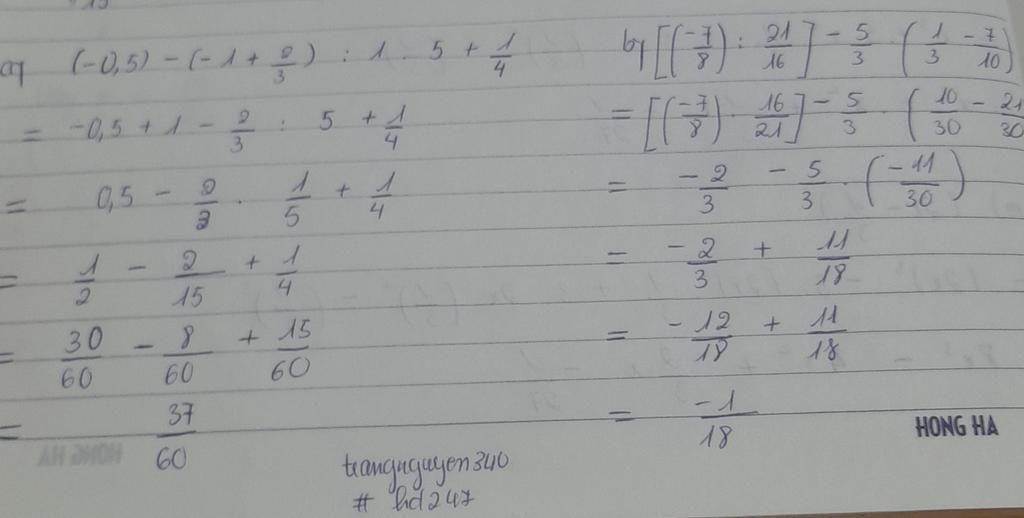 a) (-0,5) - (-1 + 2/3) : 1 . 5 + 1/4
= -0,5 + 1 - 2/3 : 5 + 1/4
= 0,5 - 2/3 . 1/5 + 1/4
= 1/2 - 2/15 + 1/4
= 30/60 - 8/60 + 15/60
= 37/60
b) [(-7/8) : 21/16] - 5/3 . (1/3 - 7/10)
= [(-7/8) . 16/21] - 5/3 . (10/30 - 21/30
= -2/3 - 5/3 . (-11/30)
= -2/3 + 11/18
= -12/18 + 11/18
= -1/18
HONG HA
trangnguyen340
# hd247